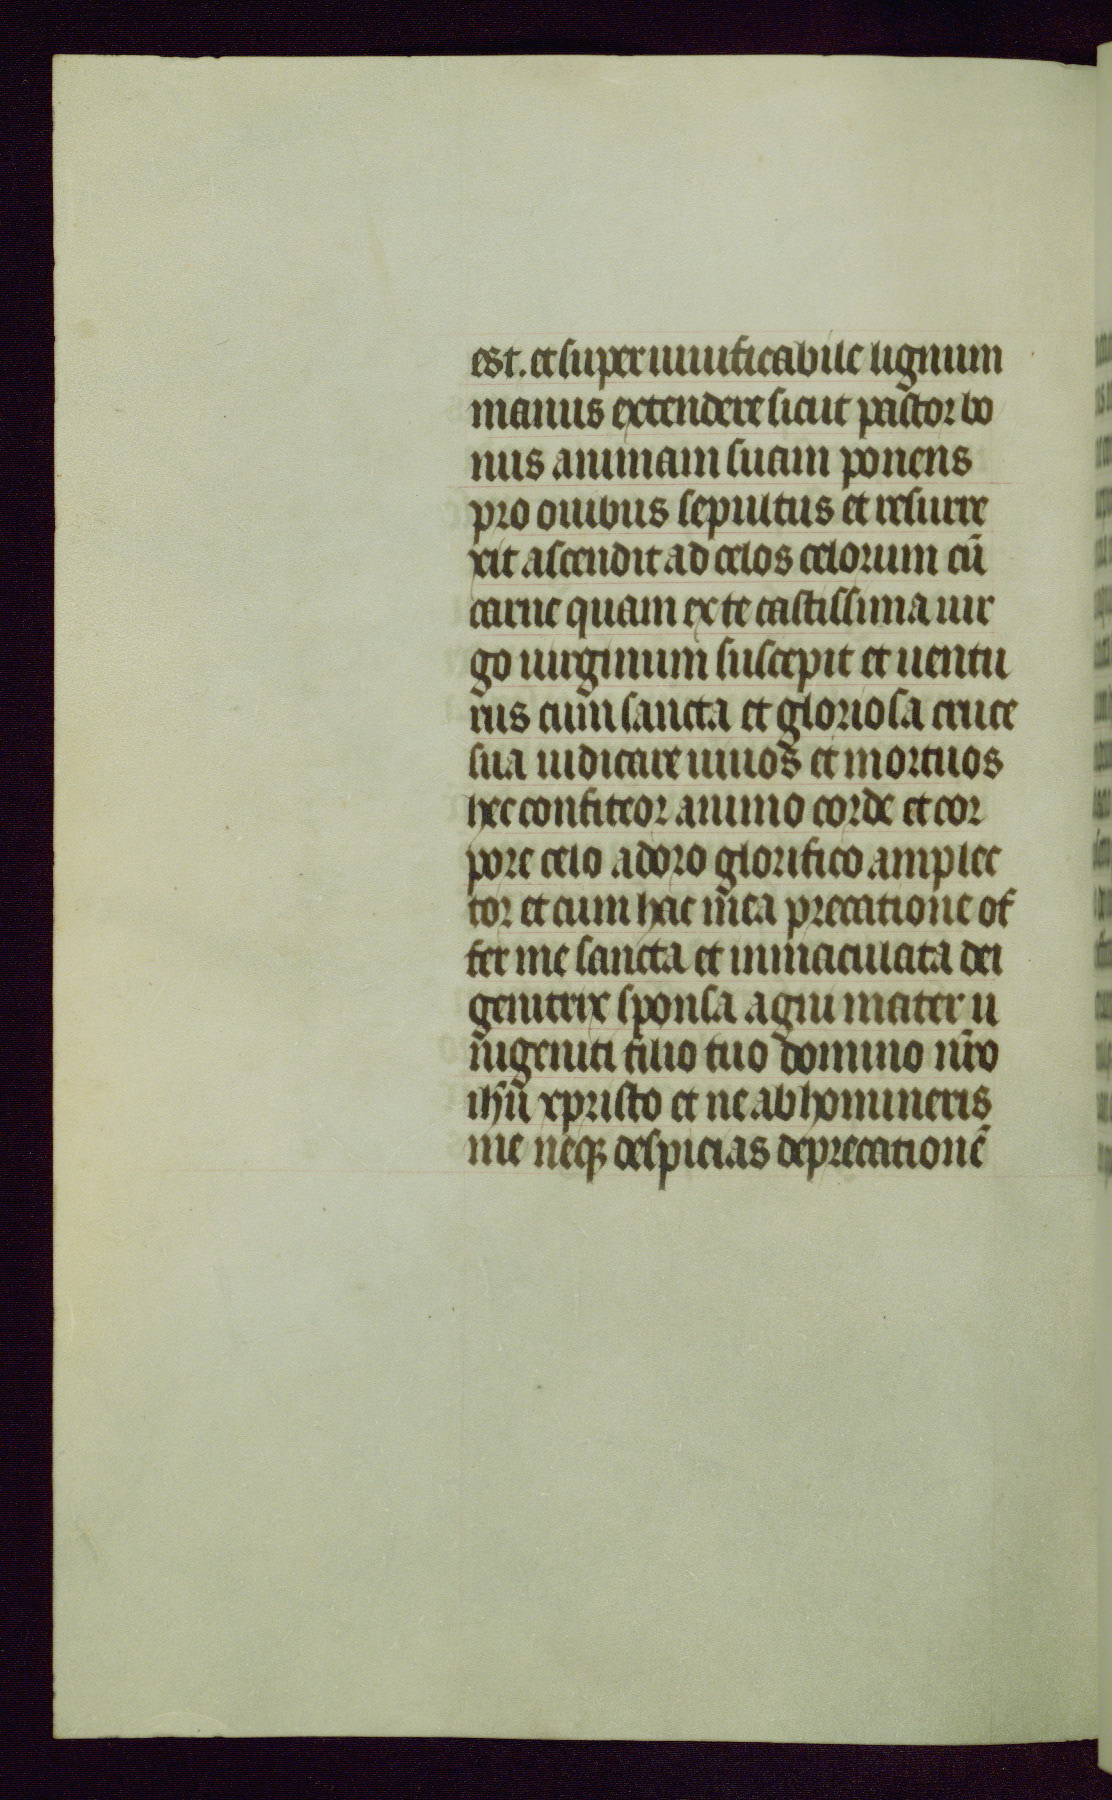 est. et super uiuificabile lignum
manus extendere sicut pastor bo
nus animam suam ponens
pro ouibus sepultus et resurre
xit ascendit ad celos celorum cū
carne quam ex te castissima uir
go uirginum suscepit et uentu
rus cum sancta et gloriosa cruce
sua iudicare uiuos et mortuos
hec confiteor animo corde et cor
pore celo adoro glorifico amplec
tor et cum hac mea precatione of
fer me sancta et inmaculata dei
genitrix sponsa agni mater u
nigeniti filio tuo domino nr̄o
ihū xpristo et ne abhomineris
me neqꝫ despicias deprecationē